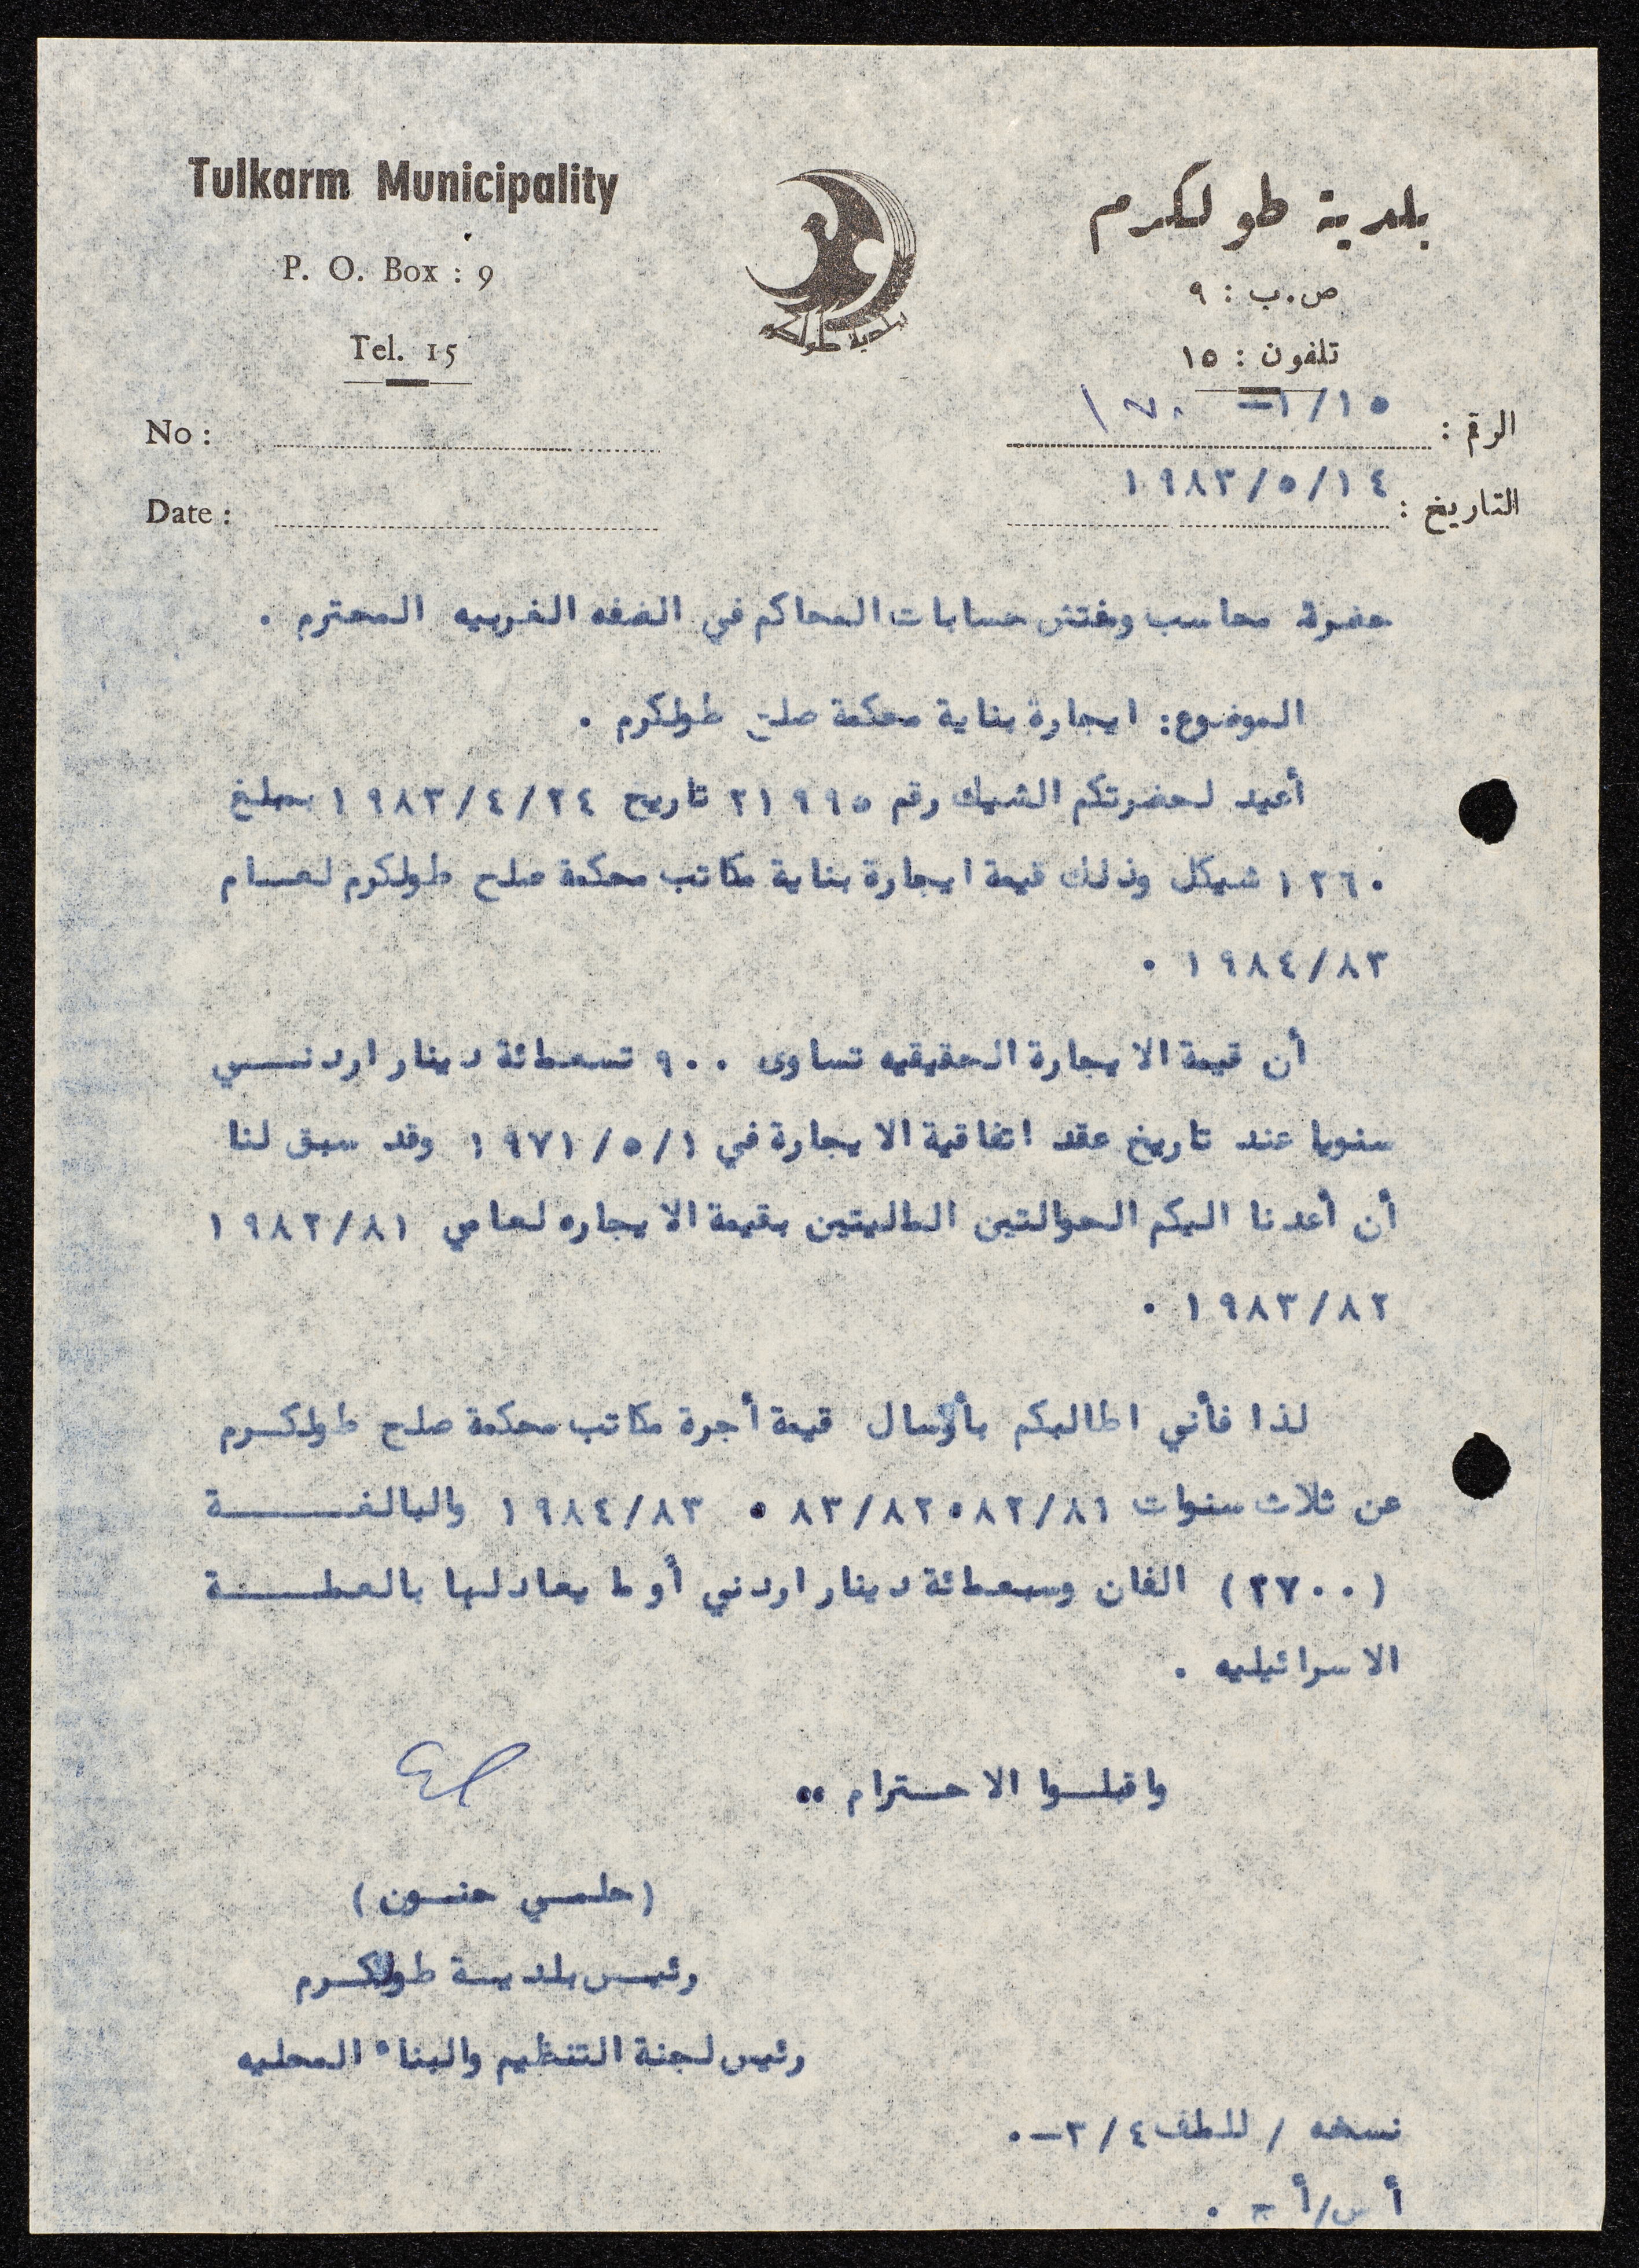 Tulkarm Municipality
P. O. Box : 9
Tel. 15
No :
Date :
بلدية طولكرم
بلدية طولكرم
ص.ب : ٩
تلفون : ١٥
الرقم : ١/١٥–
التاريخ : ١٩٨٣/٥/١٤
حضرة محاسب ومفتش حسابات المحاكم في الضفه الغربيه المحترم .
الموضوع: ايجارة بناية محكمة صلح طولكرم .
أعيد لحضرتكم الشيك رقم ٢١٩٩٥ تاريخ ١٩٨٣/٤/٢٤ بمبلغ
١٢٦٠ شيكل وذلك قيمة ايجارة بناية مكاتب محكمة صلح طولكرم لعــام
١٩٨٤/٨٣ .
أن قيمة الايجارة الحقيقيه تساوى ٩٠٠ تسعمائة دينار اردنـــي
سنويا عند تاريخ عقد اتفاقية الايجارة في ١٩٧١/٥/١ وقد سبق لنا
أن أعدنا اليكم الحوالتين الماليتين بقيمة الايجاره لعامي ١٩٨٢/٨١
١٩٨٣/٨٢ .
لذا فأني اطالبكم بأرسال قيمة أجرة مكاتب محكمة صلح طولكــرم
عن ثلاث سنوات ٨٢/٨١، ٨٣/٨٢ ، ١٩٨٤/٨٣ والبالغــــــة
(٢٧٠٠) الفان وسبعمائة دينار اردني أو ما يعادلها بالعملـــــة
الاسرائيليه .
واقبلــوا الاحــترام ،،
(حلمــي حنــون)
رئيــس بلديــة طولكــرم
رئيس لجنة التنظيم والبناء المحليه
نسخه / للملف ٢/٤–.
أ س/أ ج .